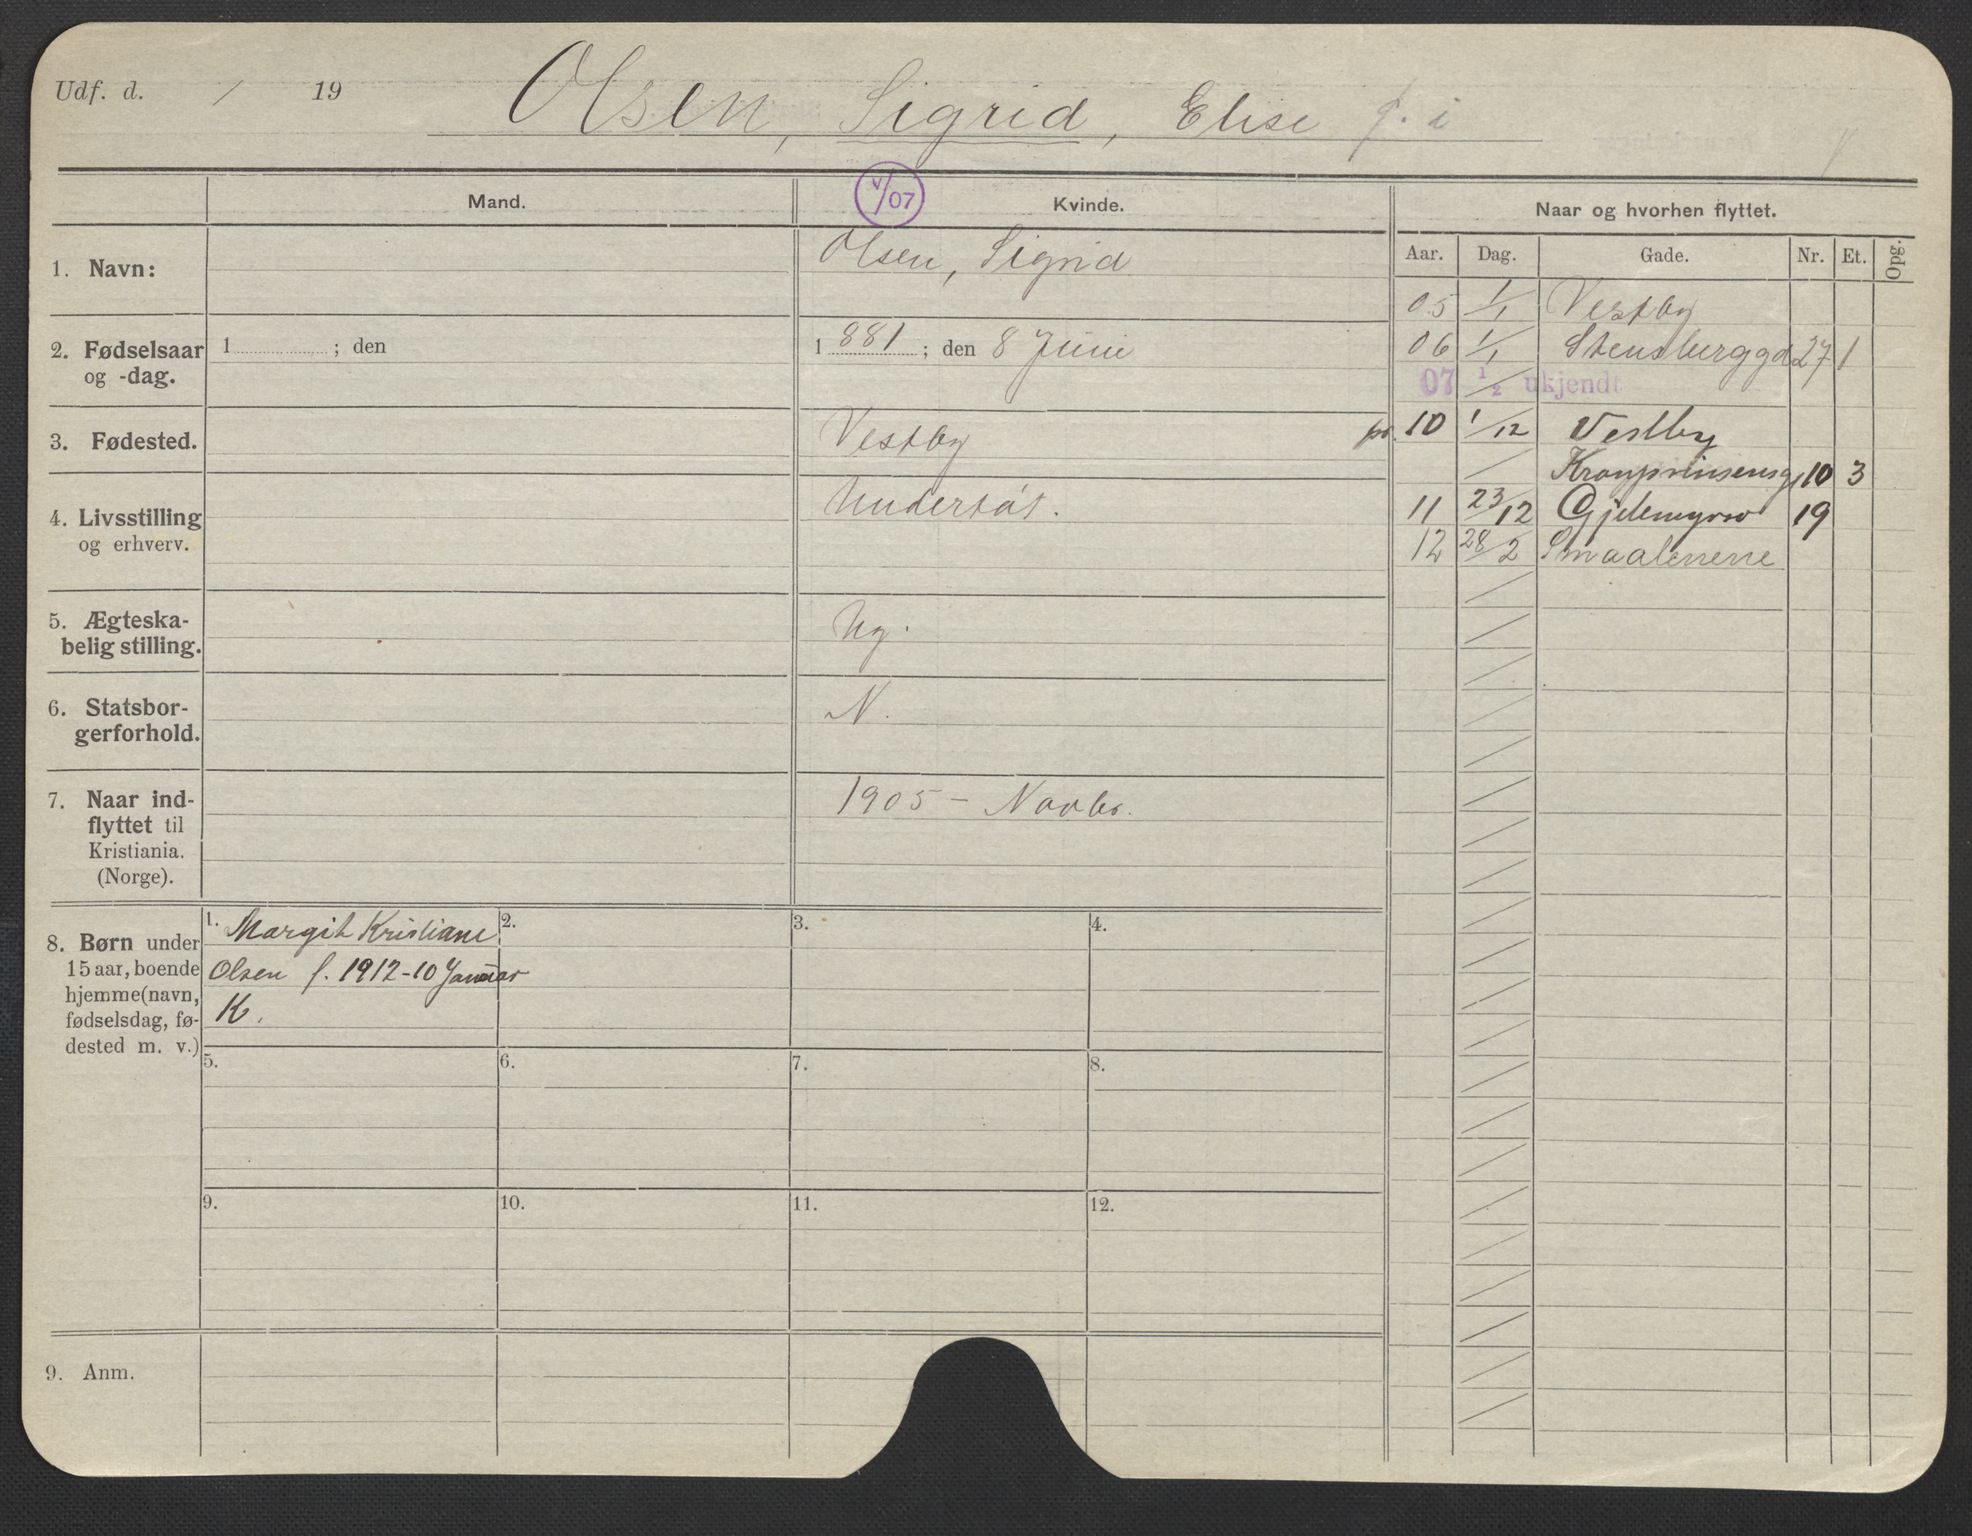 Udf. d. / 19
Olsen, Sigrid, Elise f. i
Mand.
v/07
Kvinde.
Naar og hvorhen flyttet.
Aar. Dag. Gade. Nr. Et. Opg.
1. Navn:
Olsen, Sigrid
2. Fødselsaar og -dag.
1 ; den
1 881 ; den 8 Juni
3. Fødested.
Vestby
4. Livsstilling og erhverv.
Understøt.
5. Ægteska-
belig stilling.
Ug.
6. Statsbor-
gerforhold.
N.
7. Naar ind-
flyttet til
Kristiania.
(Norge).
1905 – Novbr.
05 1/1 Vestby
06 1/1 Stensberggd 27 1
07 1/2 ukjendt
10 1/12 Vestby
/ Kronprinsensg 10 3
11 23/12 Gjetemyrsv 19
12 28/2 Smaalenene
8. Børn under
15 aar, boende
hjemme (navn,
fødselsdag, fø-
dested m. v.)
1. Margit Kristiane
Olsen f. 1912-10 Januar
K.
2.
3.
4.
5.
6.
7.
8.
9.
10.
11.
12.
9. Anm.